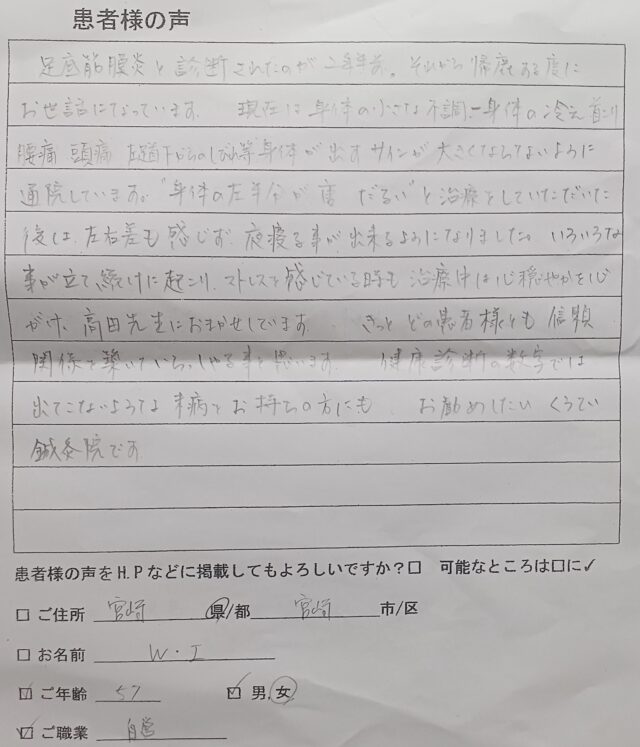 患者様の声
足底筋腱炎と診断されたのが二年半前。それから帰鹿する度に
お世話になっています。 現在は身体の小さな不調、身体の冷え 首こり
腰痛 頭痛 左首下からのしびれ等身体が出すサインが大きくならないように
通院しています。"身体の左半分が重だるい"と治療をしていただいた
後は、左右差も感じず、夜寝る事が出来るようになりました。いろいろな
事が立て続けに起こり、ストレスを感じている時も治療中は心穏やかを心
がけ、高田先生におまかせしています。 きっと どの患者様とも 信頼
関係を築いていらっしゃる事と思います。 健康診断の数字では
出てこないような未病をお持ちの方にも、お勧めしたい くうてい
鍼灸院です
患者様の声をH.Pなどに掲載してもよろしいですか?□ 可能なところは□に✓
□ ご住所 宮崎 県/都 宮崎 市/区
□ お名前 W・I
☑ ご年齢 57 ☑ 男.女
☑ ご職業 自営